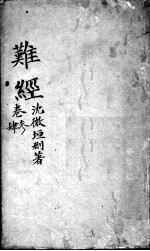 難經
沈微垣刪著
卷參肆